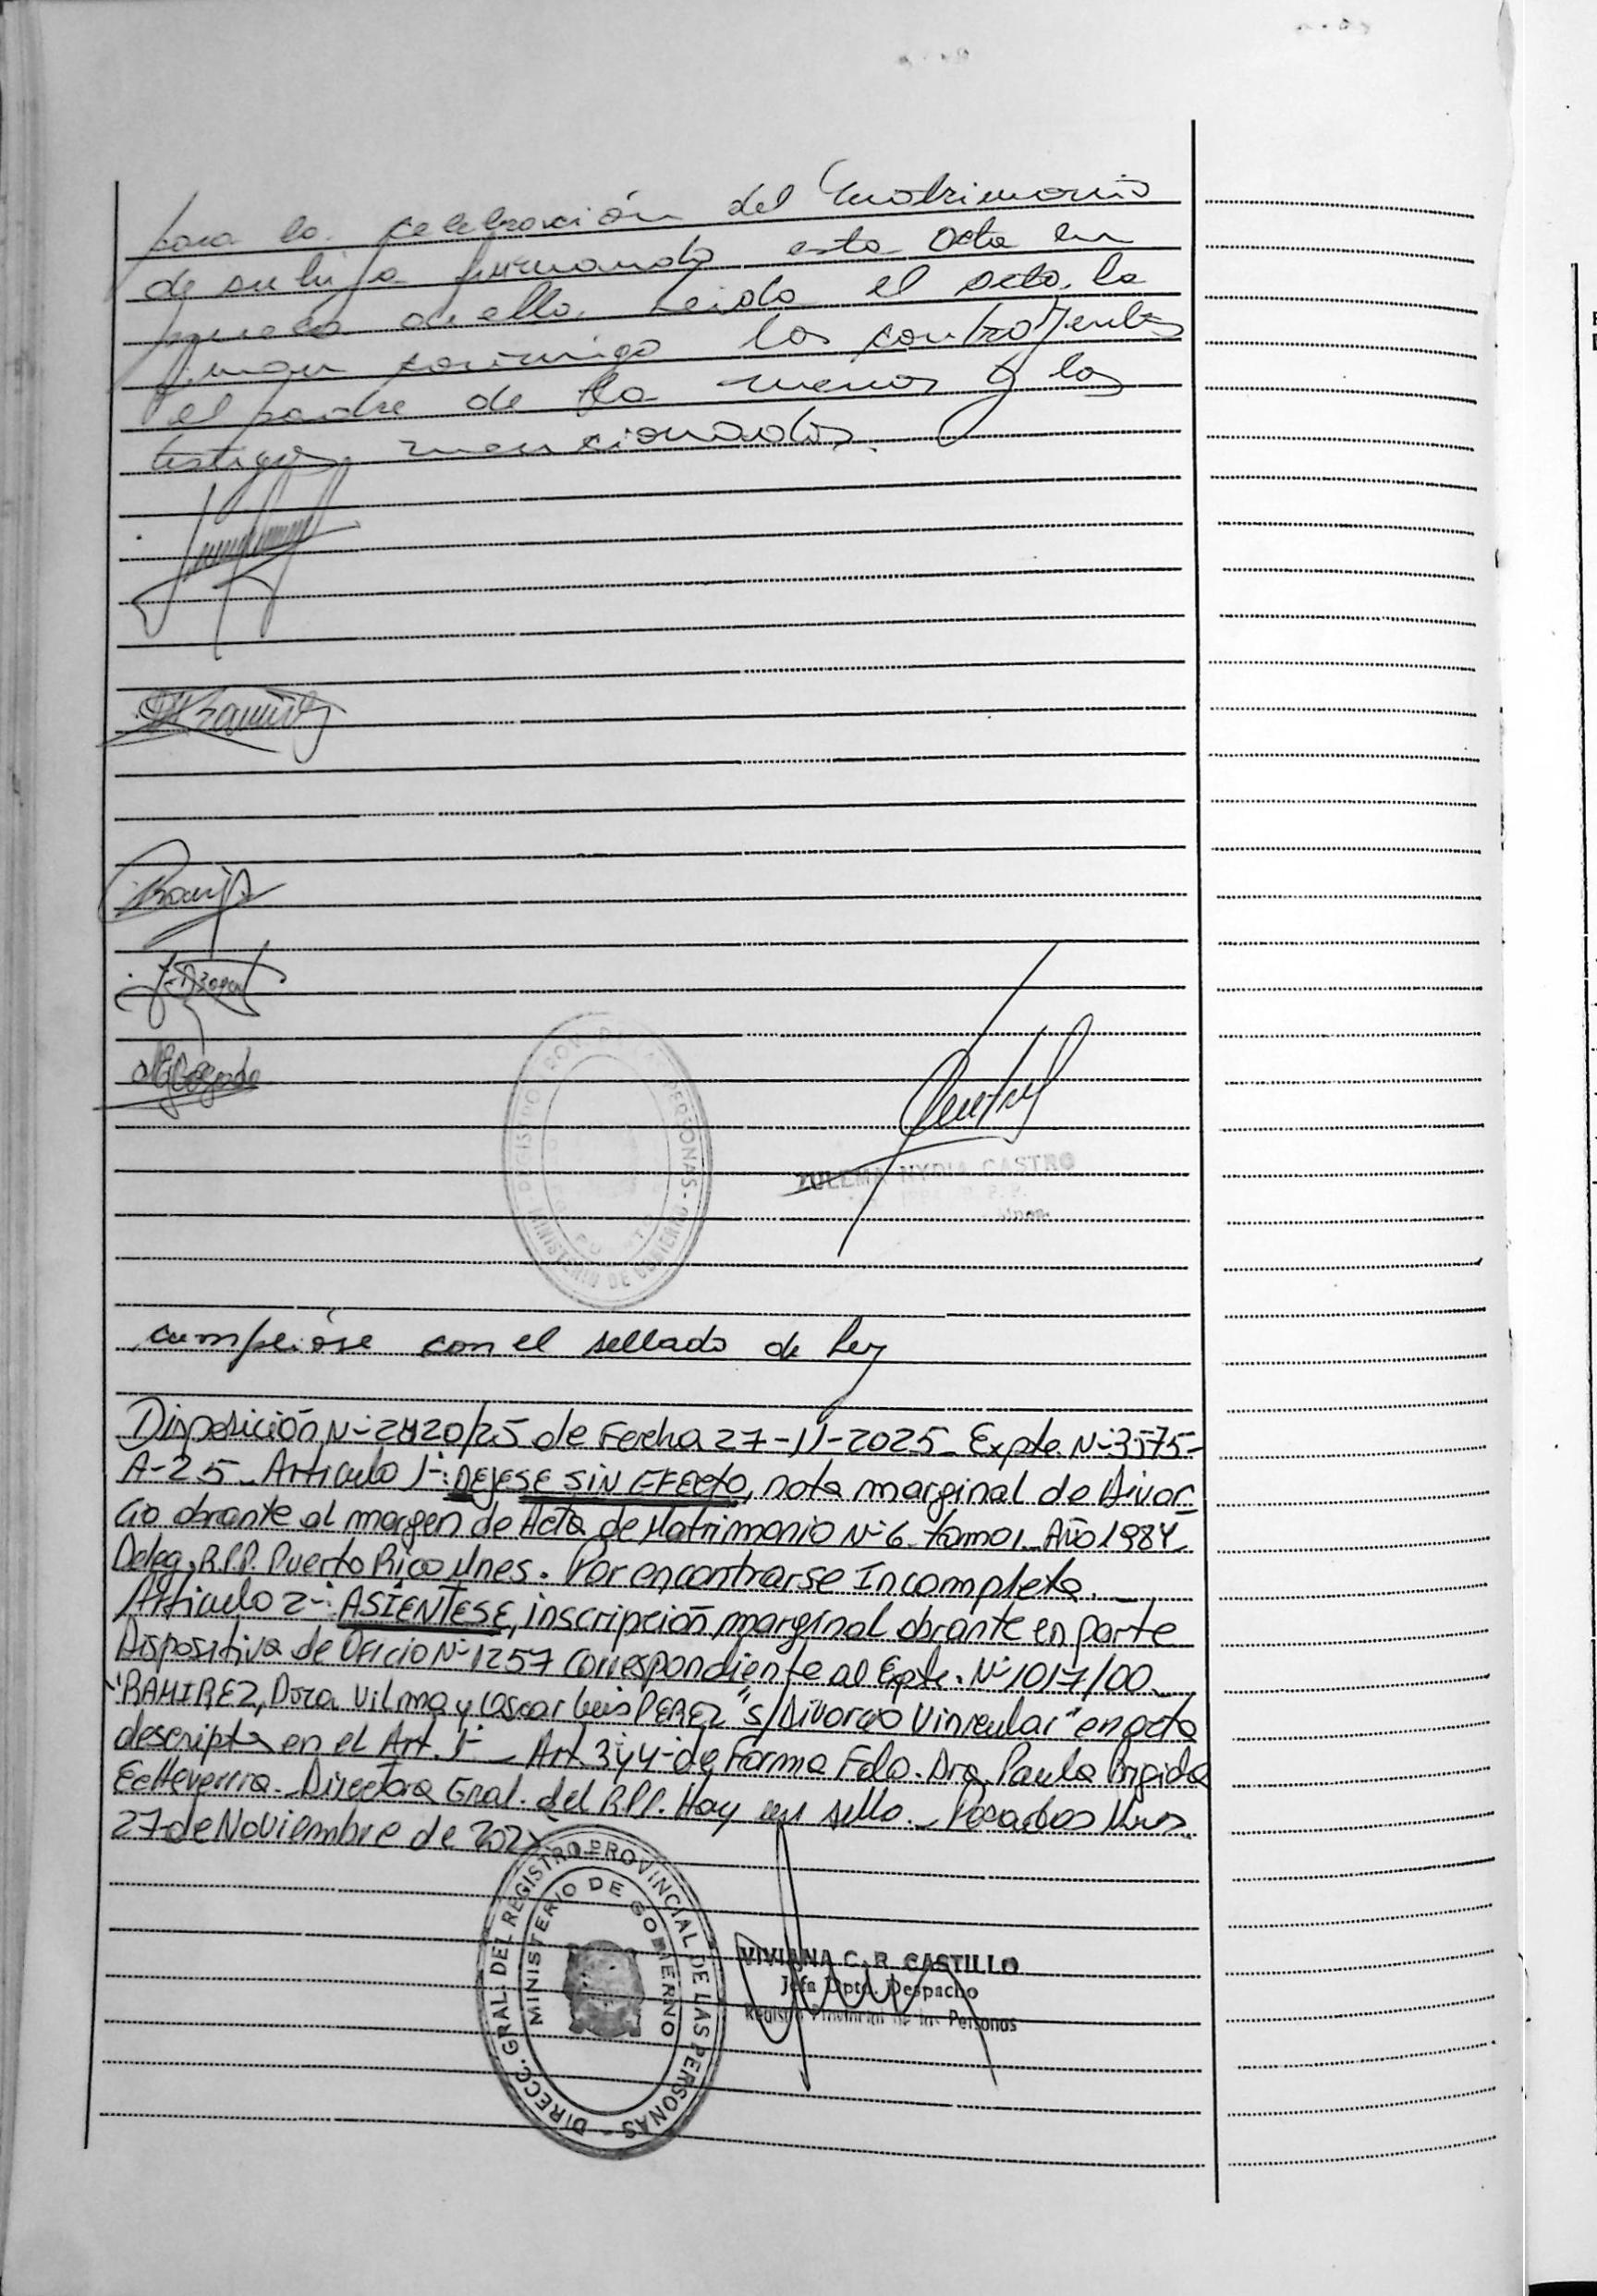 para la celebración del Matrimonio
de su hija firmando esta acta en
prueba de ello. Leida el acta, la
firman conmigo los contrayentes
el padre de la menor y los
testigos mencionados.
ZULEMA NYDIA CASTRO
MINISTERIO DE GOBIERNO
PERSONAS
cumplióse con el sellado de Ley
Disposición N- 2420/25 de Fecha 27-11-2025- Expte. N-3575-
A-25- Articulo 1-: DEJESE SIN EFECTO, nota marginal de Divor
cio obrante al margen de Acta de Matrimonio N-6- tomo 1- Año 1984-
Deleg. R.P.P. Puerto Rico Mnes. Por encontrarse Incompleta.-
Articulo 2-: ASIENTESE, inscripción marginal obrante en parte
Dispositiva de Oficio N-1257 correspondiente al Expte. N-1017/00-
"RAMIREZ, Dora Vilma y Oscar Luis PEREZ" s/Divorcio Vincular" en acta
descripta en el Art. 1- - Art. 3 y 4- de Forma Fdo. Dra. Paula Brigida
Echeverria- Directora Gral. del R.P.P. Hay un sello.- Posadas Mnes.
27 de Noviembre de
DIRECC. GRAL. DEL REGISTRO PROVINCIAL DE LAS PERSONAS -
MINISTERIO DE GOBIERNO
VIVIANA C. R. CASTILLO
Jefa Dpto. Despacho
Registro Provincial de las Personas